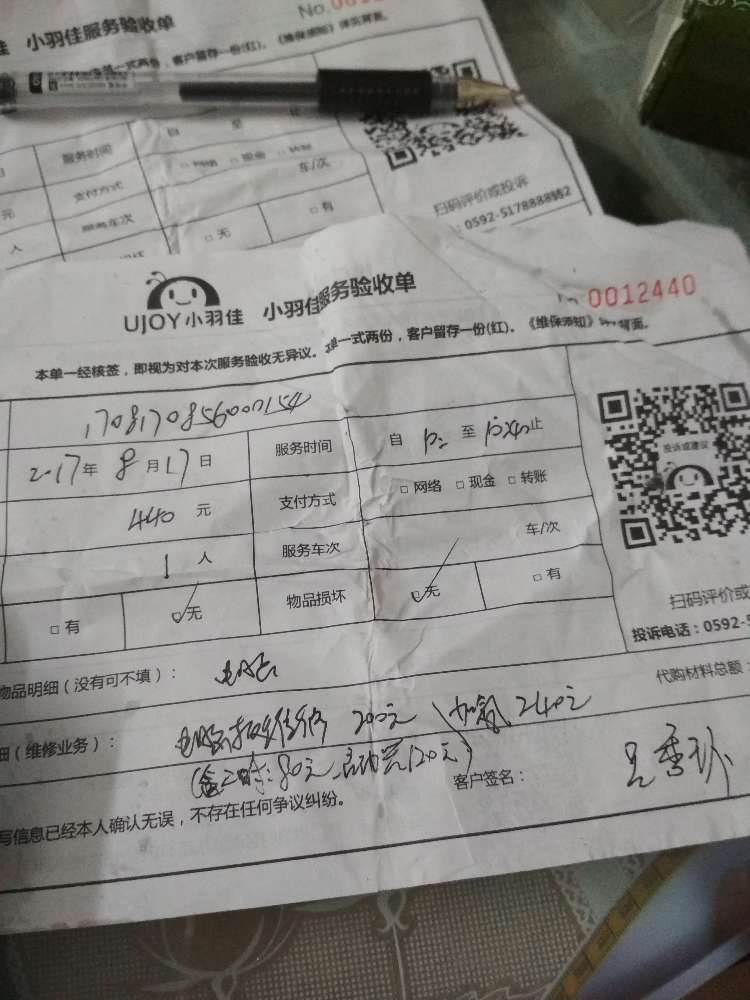 小羽佳服务验收单
No.001
一式两份，客户留存一份(红)。《维保须知》详见背面。
自 至 止
服务时间
网络 现金 转账
支付方式
车/次
元
服务车次
无 有
人
扫码评价或投诉
：0592-5178888转2
UJOY小羽佳 小羽佳服务验收单
0012440
本单一经核签，即视为对本次服务验收无异议。本单一式两份，客户留存一份(红)。《维保须知》详见背面。
170817085600154
2017年8月17日 服务时间 自 至 止
440元 支付方式 网络 现金 转账
1人 服务车次 车/次
有 无 物品损坏 无 有
投诉或建议
扫码评价或
投诉电话：0592-5
物品明细（没有可不填）：
代购材料总额：
细（维修业务）： 200元 加氟240元
80元 启动器120元)
客户签名：
写信息已经本人确认无误，不存在任何争议纠纷。